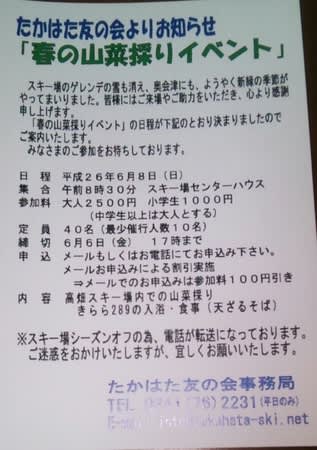 たかはた友の会よりお知らせ
「春の山菜採りイベント」
スキー場のゲレンデの雪も消え、奥会津にも、ようやく新緑の季節が
やってまいりました。皆様にはご来場やご助力をいただき、心より感謝
申し上げます。
「春の山菜採りイベント」の日程が下記のとおり決まりましたので
ご案内いたします。
みなさまのご参加をお待ちしております。
日 程 平成26年6月8日（日）
集 合 午前8時30分 スキー場センターハウス
参加料 大人2500円 小学生1000円
（中学生以上は大人とする）
定 員 40名（最少催行人数10名）
締 切 6月6日（金） 17時まで
申 込 メールもしくはお電話にてお申込み下さい。
メールお申込みによる割引実施
⇒メールでのお申込みは参加料100円引き
内 容 高畑スキー場内での山菜採り
きらら289の入浴・食事（天ざるそば）
※スキー場シーズンオフの為、電話が転送になっております。
ご迷惑をおかけいたしますが、宜しくお願いいたします。
たかはた友の会事務局
TEL 0241(76)2231(平日のみ)